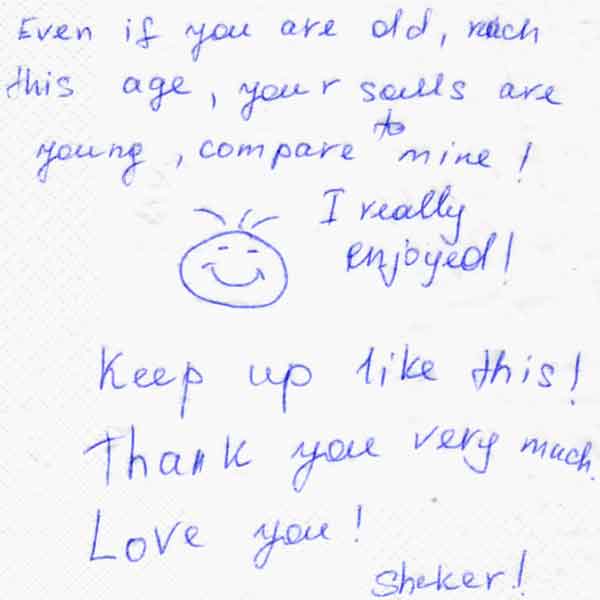 Even if you are old, reach
this age, your souls are
young, compare to mine!
I really
enjoyed!
Keep up like this!
Thank you very much.
Love you!
Sheker!